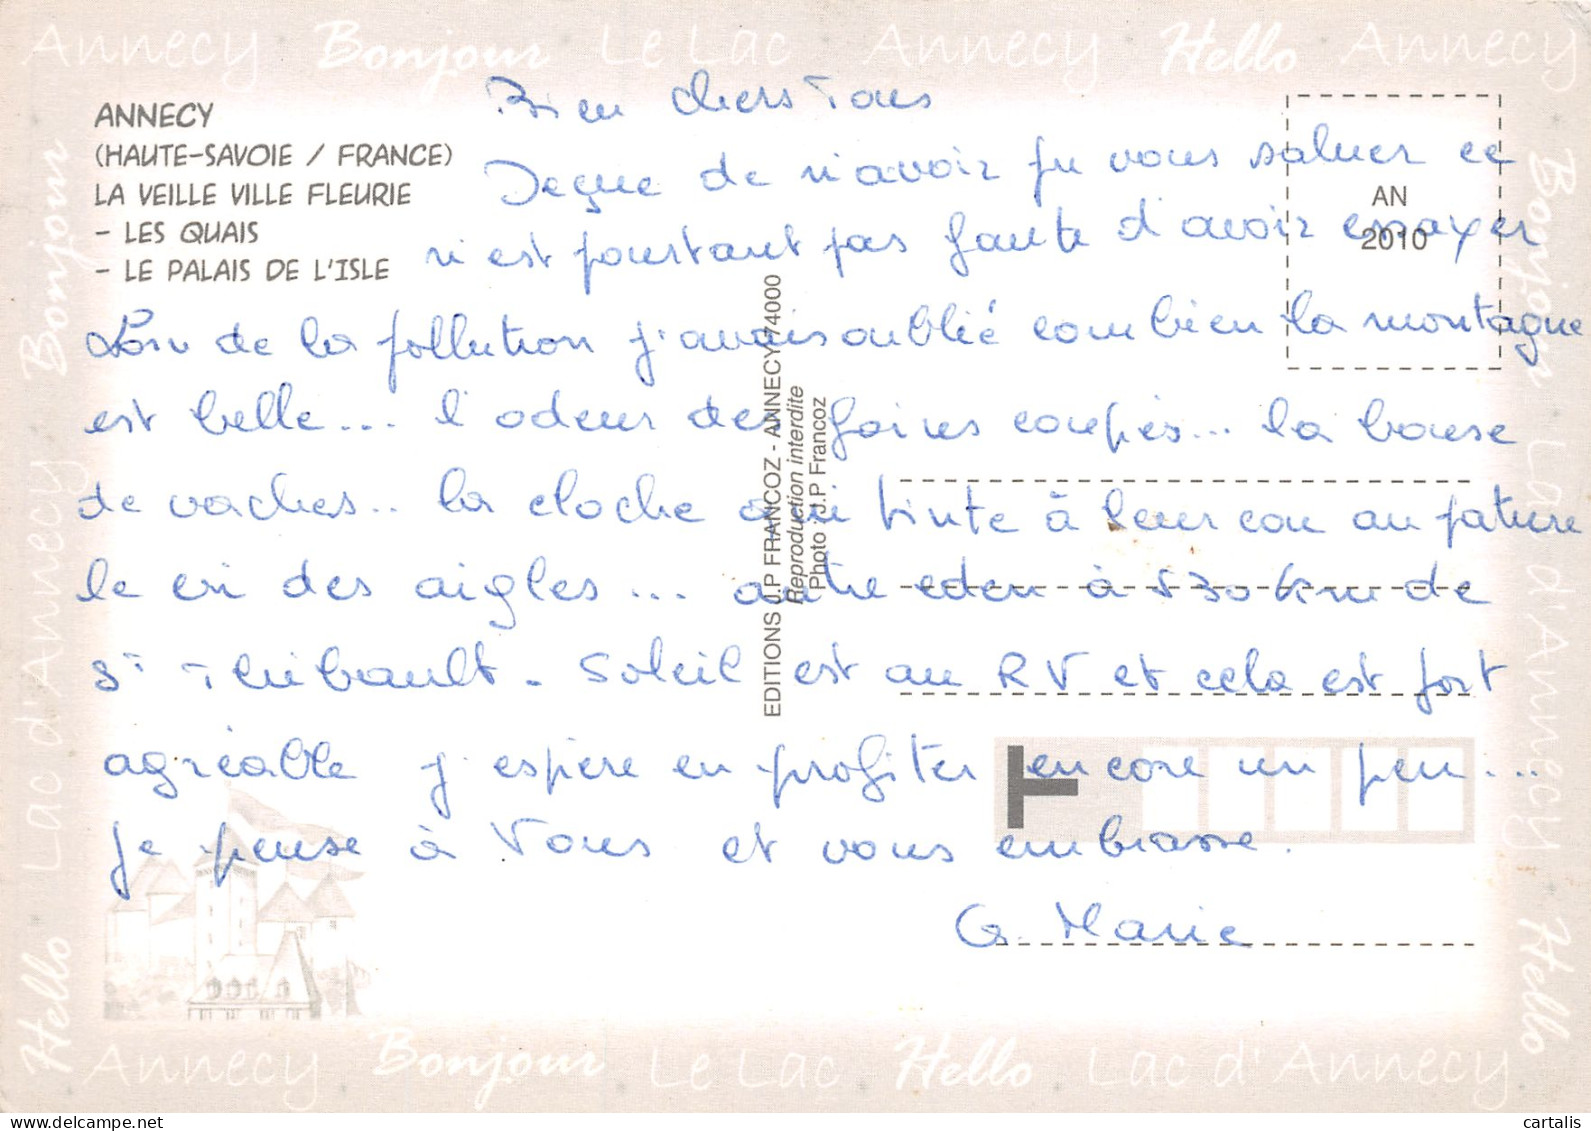 Annecy Bonjour Le Lac Annecy Hello Annecy
ANNECY
(HAUTE-SAVOIE / FRANCE)
LA VEILLE VILLE FLEURIE
- LES QUAIS
- LE PALAIS DE L'ISLE
AN
2010
Bien chers Tous
Deçue de n'avoir pu vous saluer ce
n'est pourtant pas faute d'avoir essayer
Loin de la pollution j'avais oublié combien la montagne
est belle... l'odeur des foins coupés... la bouse
de vaches.. la cloche qui tinte à leur cou au pature
le cri des aigles... autre eden à 530 km de
St Thibault - Soleil est au RV et cela est fort
agréable j'espère en profiter encore un peu...
je pense à Vous et vous embrasse.
G. Marie
EDITIONS J.P FRANCOZ - ANNECY 74000
Reproduction interdite
Photo : J.P Francoz
Bonjour
Lac d'Annecy
Hello
Bonjour
Lac d'Annecy
Hello
Annecy Bonjour Le Lac Hello Lac d'Annecy
cartalis